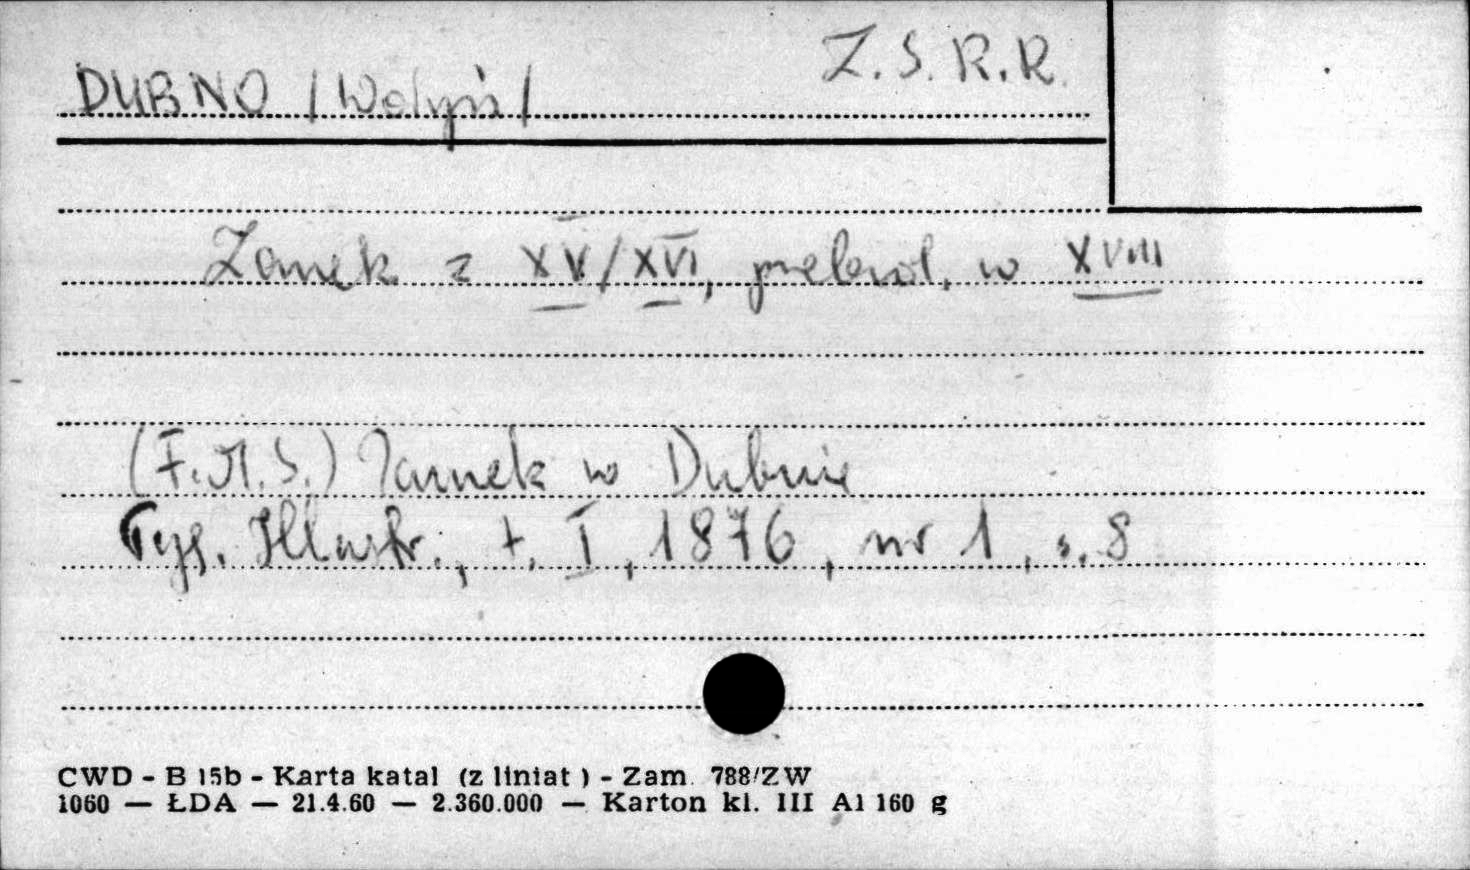 DUBNO /Wołyń/ Z.S.R.R.
Zamek z XV/XVI, przebud. w XVIII
(F.M.S.) Zamek w Dubnie
Tyg. Illustr., t. I, 1876, nr 1, s. 8
CWD - B 15b - Karta katal (z liniat ) - Zam. 788/ZW
1060 — ŁDA — 21.4.60 — 2.360.000 — Karton kl. III A1 160 g